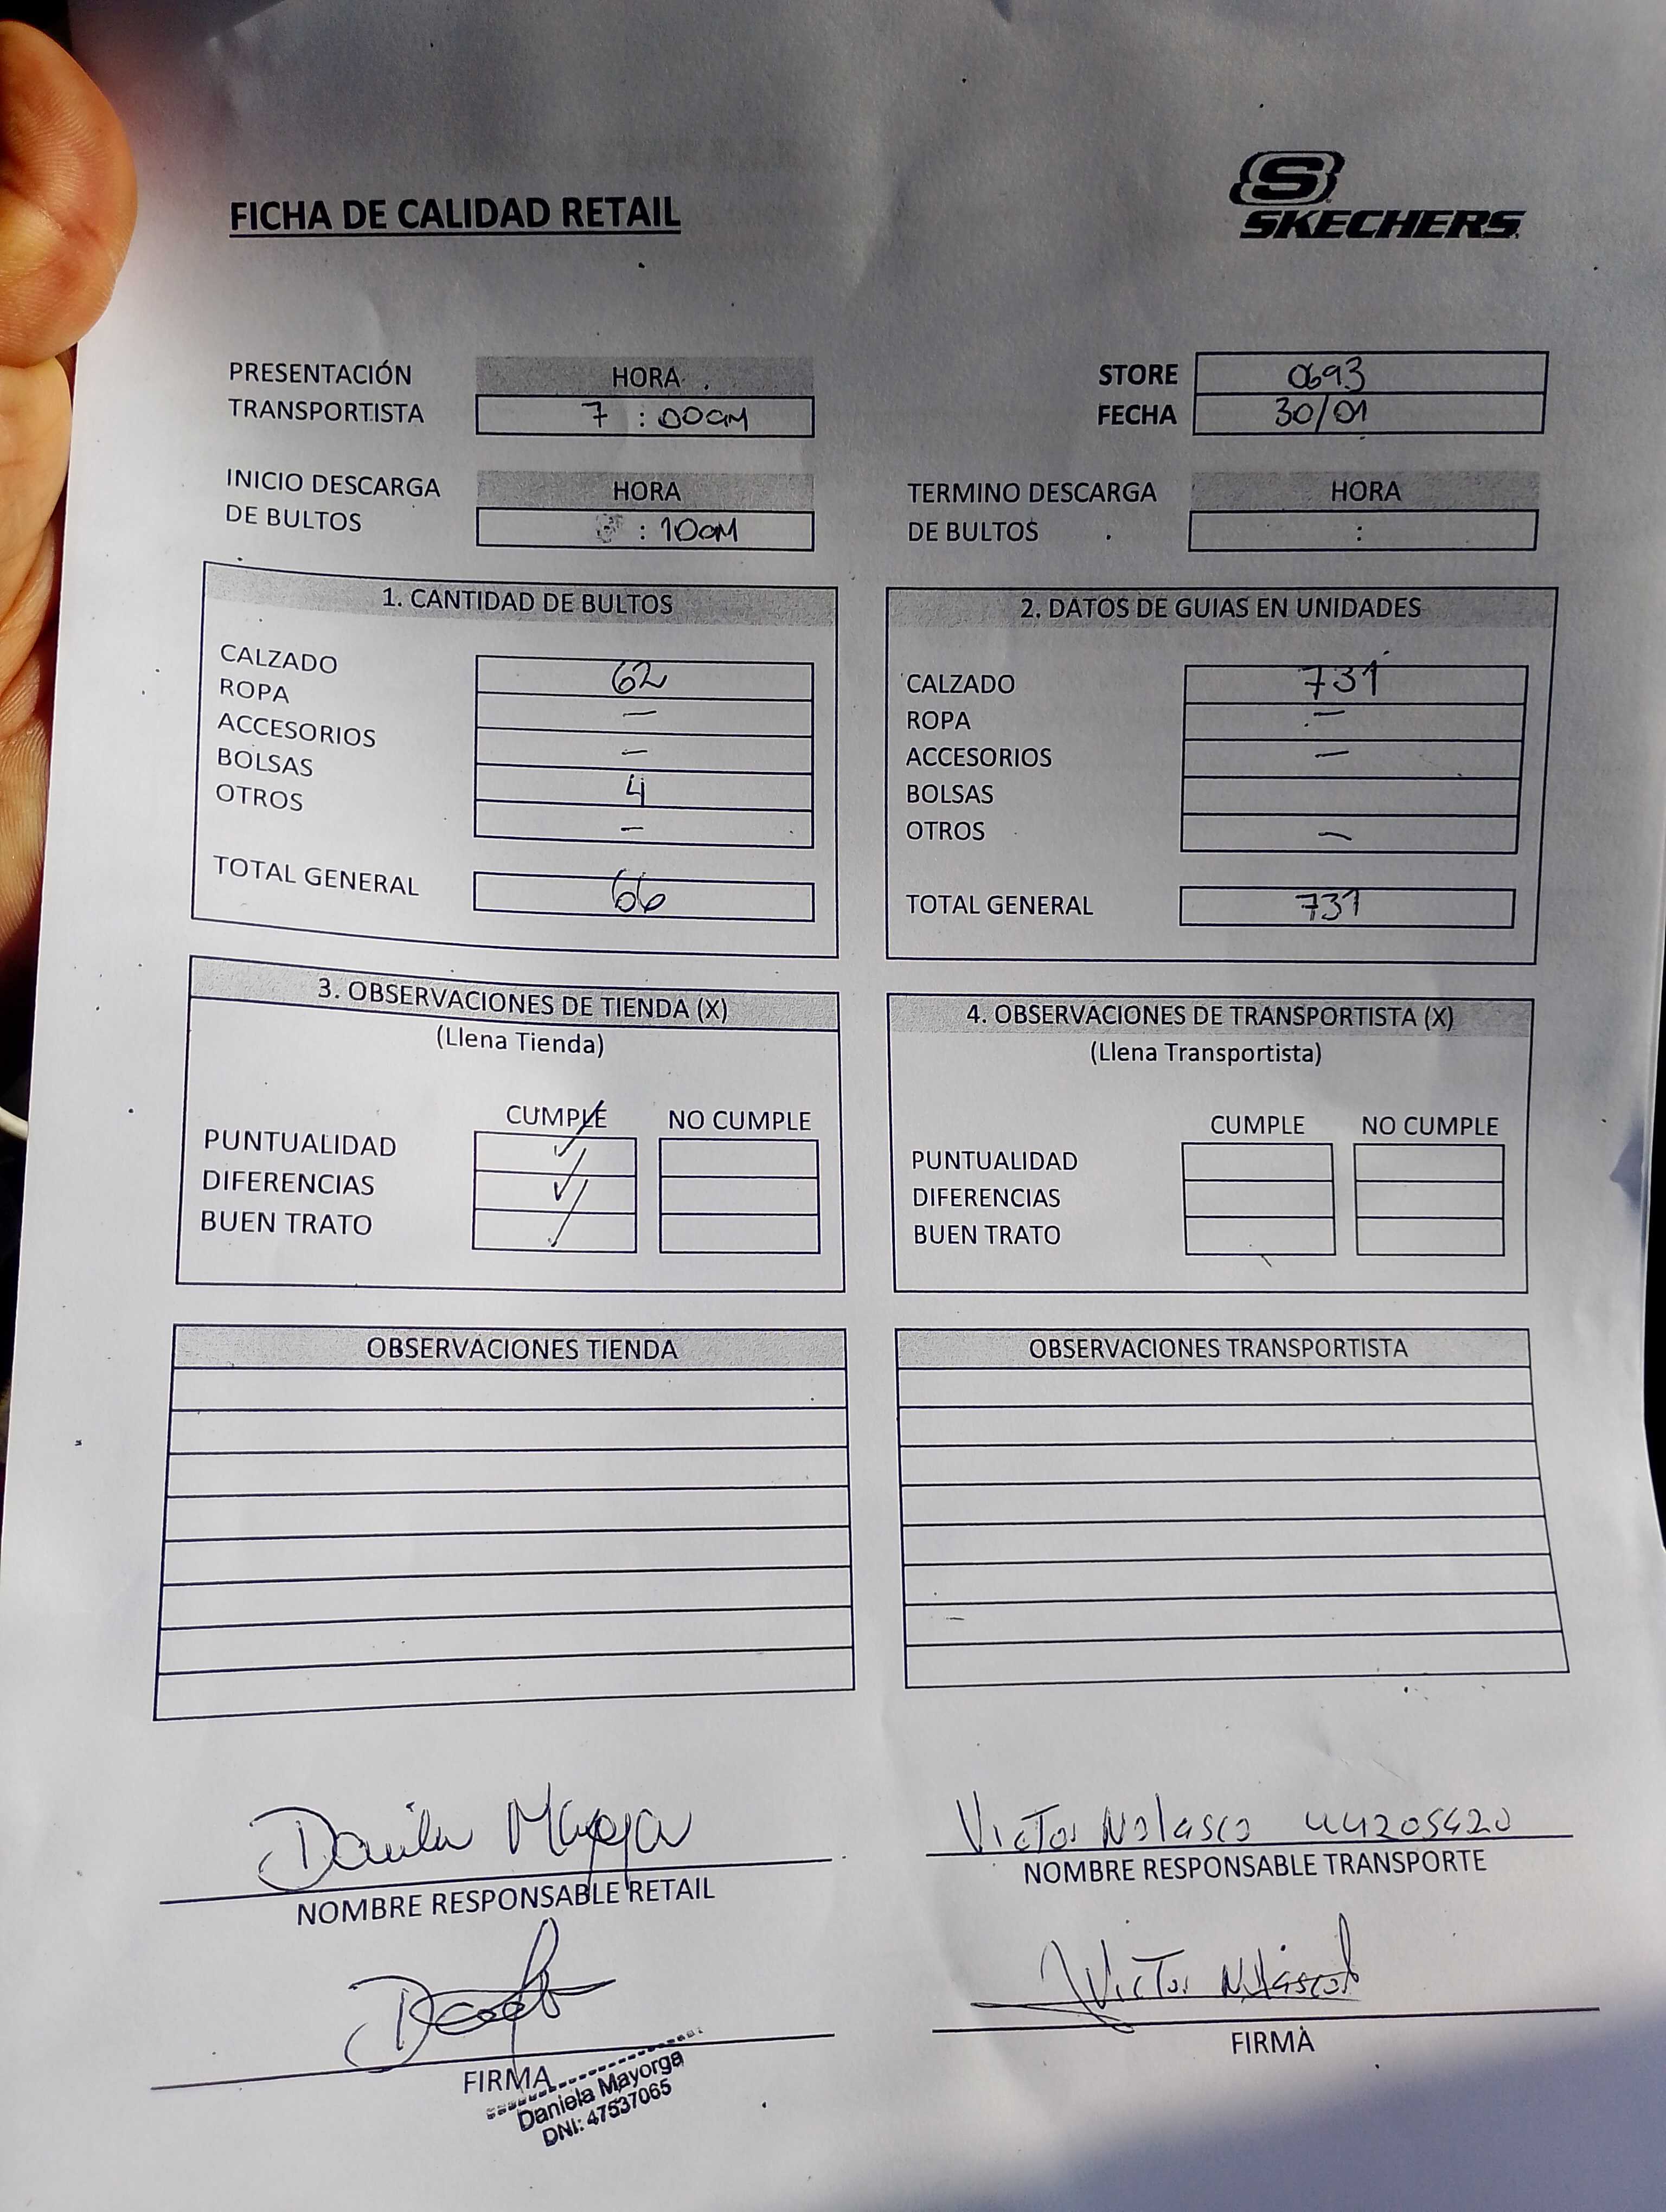 FICHA DE CALIDAD RETAIL
S
SKECHERS
PRESENTACIÓN TRANSPORTISTA
HORA
7 : 00am
STORE 0693
FECHA 30/01
INICIO DESCARGA DE BULTOS
HORA
: 10am
TERMINO DESCARGA DE BULTOS
HORA
:
1. CANTIDAD DE BULTOS
CALZADO 62
ROPA —
ACCESORIOS —
BOLSAS 4
OTROS —
TOTAL GENERAL 66
2. DATOS DE GUIAS EN UNIDADES
CALZADO 731
ROPA —
ACCESORIOS —
BOLSAS
OTROS —
TOTAL GENERAL 731
3. OBSERVACIONES DE TIENDA (X)
(Llena Tienda)
CUMPLE NO CUMPLE
PUNTUALIDAD ✓
DIFERENCIAS ✓
BUEN TRATO ✓
4. OBSERVACIONES DE TRANSPORTISTA (X)
(Llena Transportista)
CUMPLE NO CUMPLE
PUNTUALIDAD
DIFERENCIAS
BUEN TRATO
OBSERVACIONES TIENDA
OBSERVACIONES TRANSPORTISTA
NOMBRE RESPONSABLE RETAIL
FIRMA
Daniela Mayorga
DNI: 47537065
Victor Nolasco 44205420
NOMBRE RESPONSABLE TRANSPORTE
Victor Nolasco
FIRMA